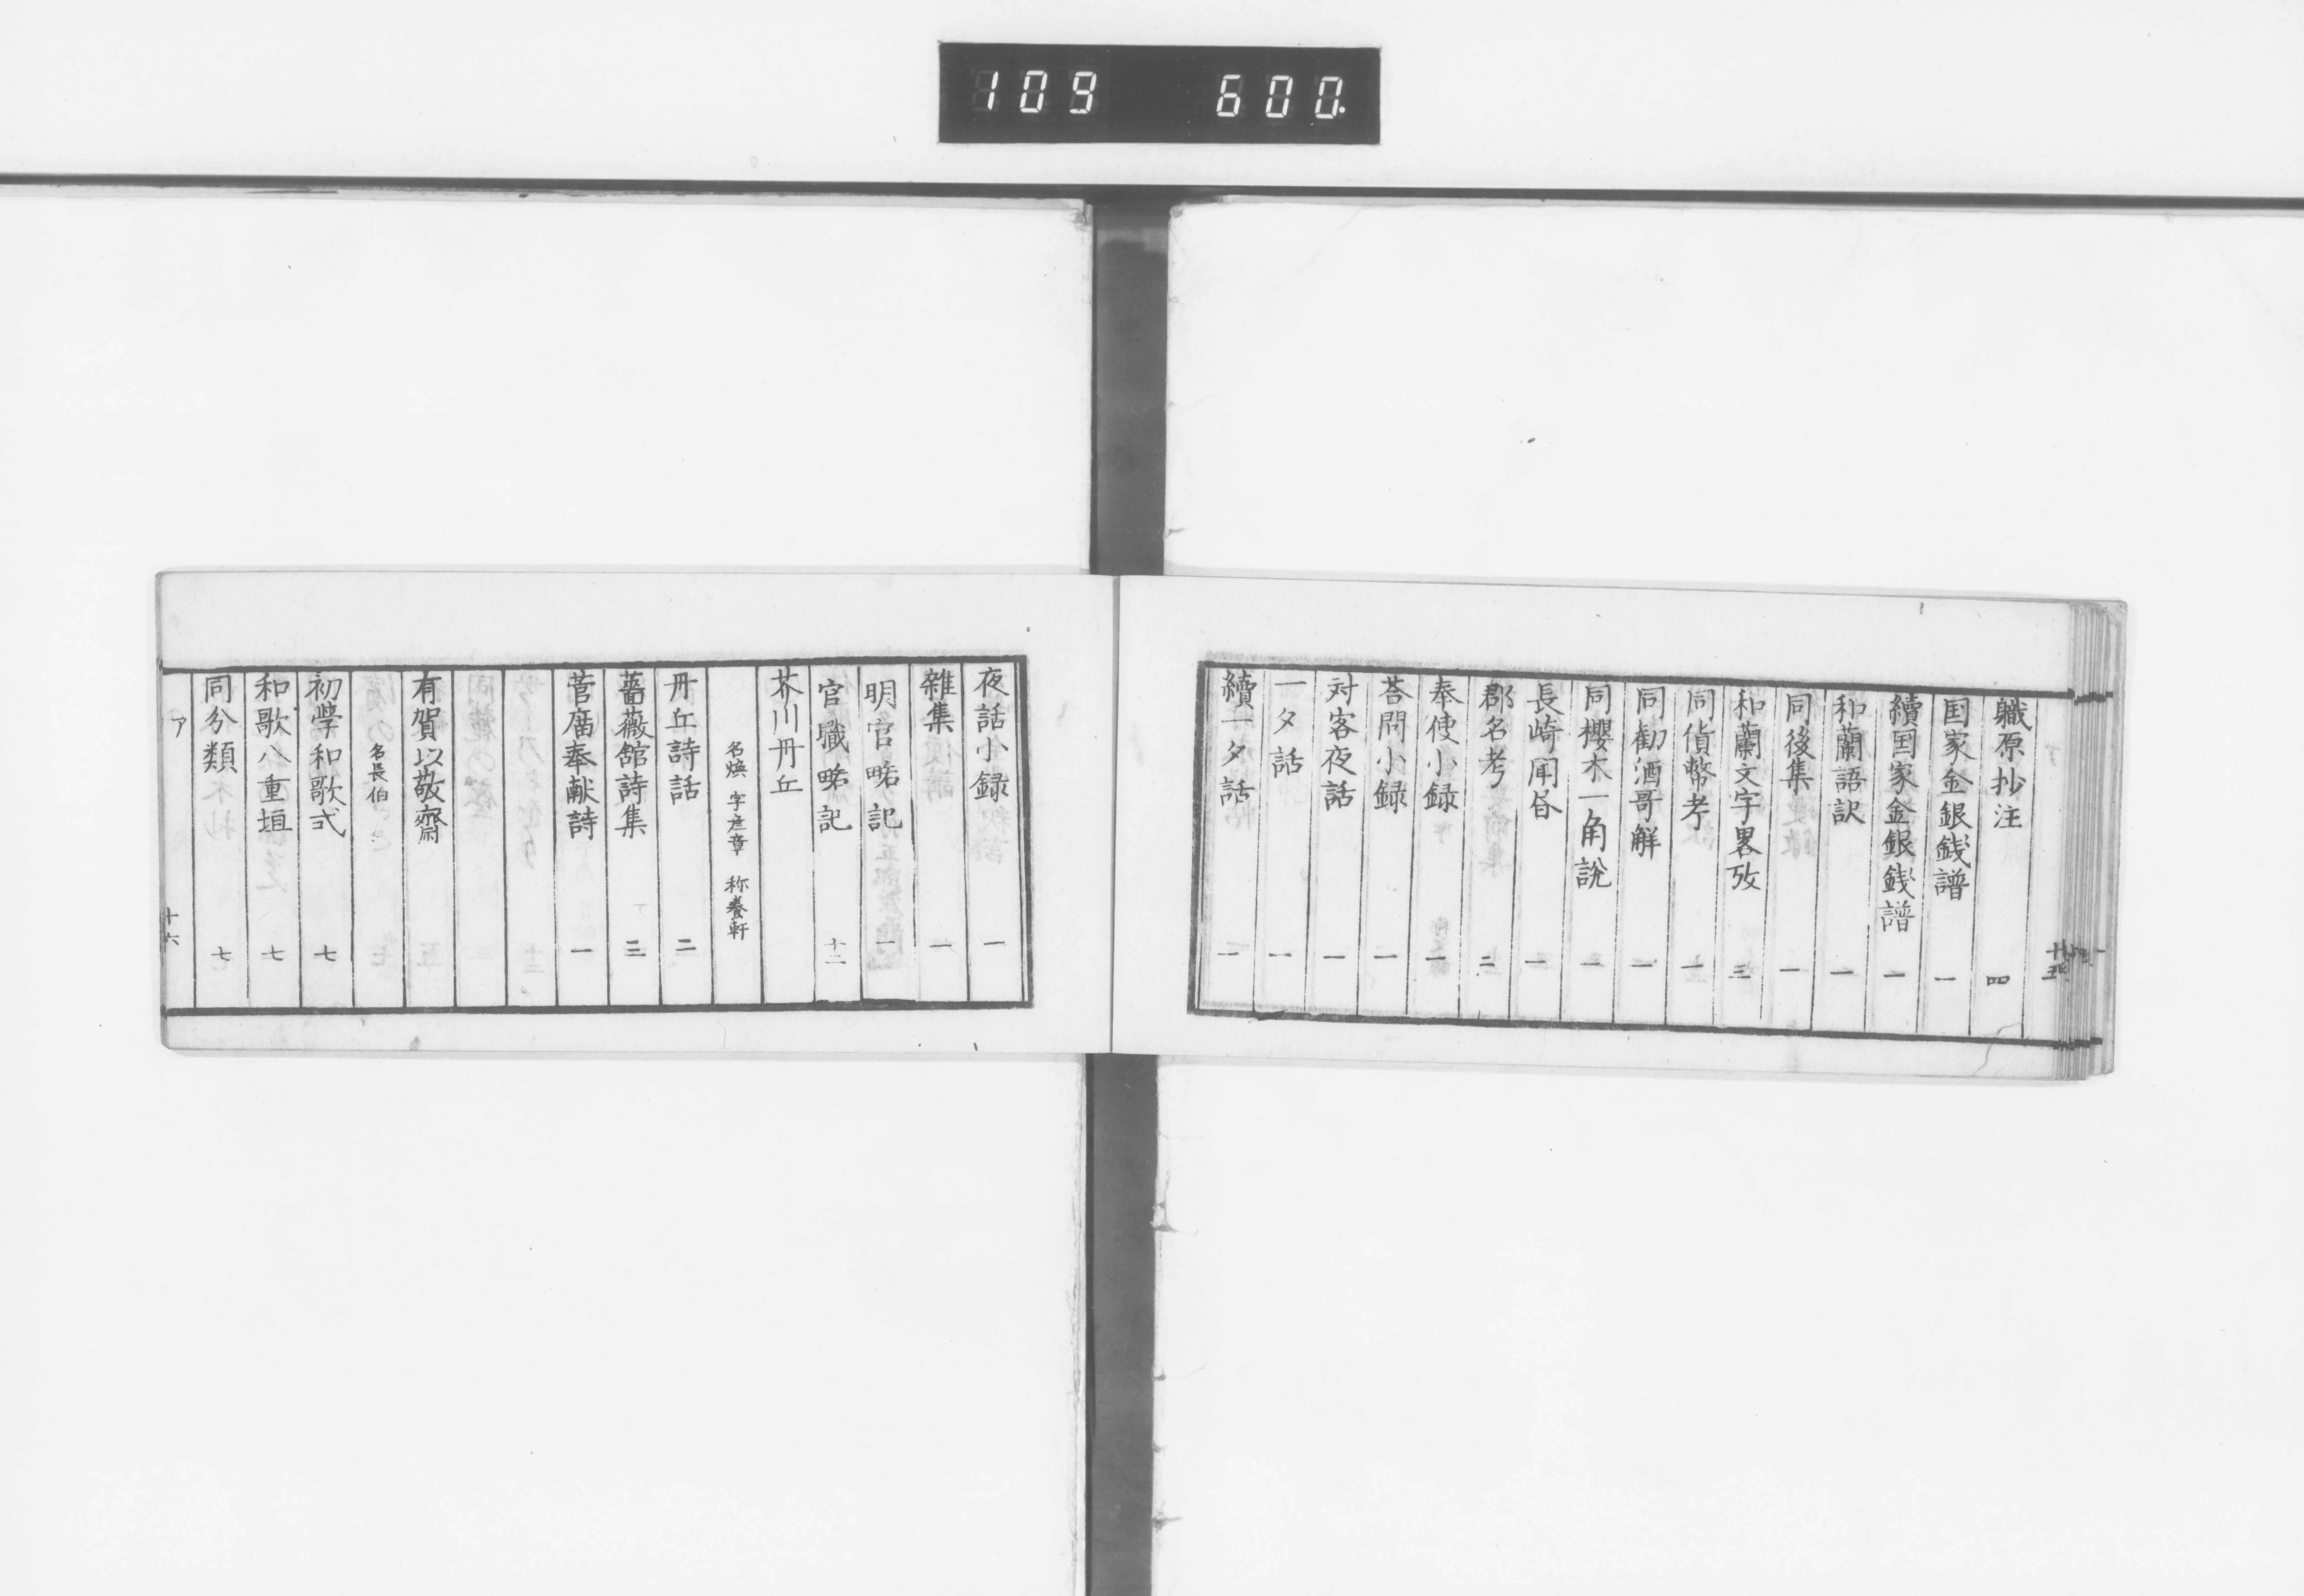 109 600.
職原抄注 四
国家金銀銭譜 一
續国家金銀銭譜 一
和蘭語訳 一
同後集 一
和蘭文字畧攷 三
同貨幣考 一
同勧酒哥解 一
同櫻木一角説 一
長崎聞昝 一
郡名考 二
奉使小録 一
荅問小録 一
対客夜話 一
一夕話 一
續一夕話 一
夜話小録 一
雜集 一
明官畧記 一
官職畧記 十二
芥川丹丘
名煥 字彦章 称養軒
丹丘詩話 二
薔薇館詩集 三
菅廟奉献詩 一
有賀以敬齋
名長伯
初学和歌式 七
和歌八重垣 七
同分類 七
ア 十六